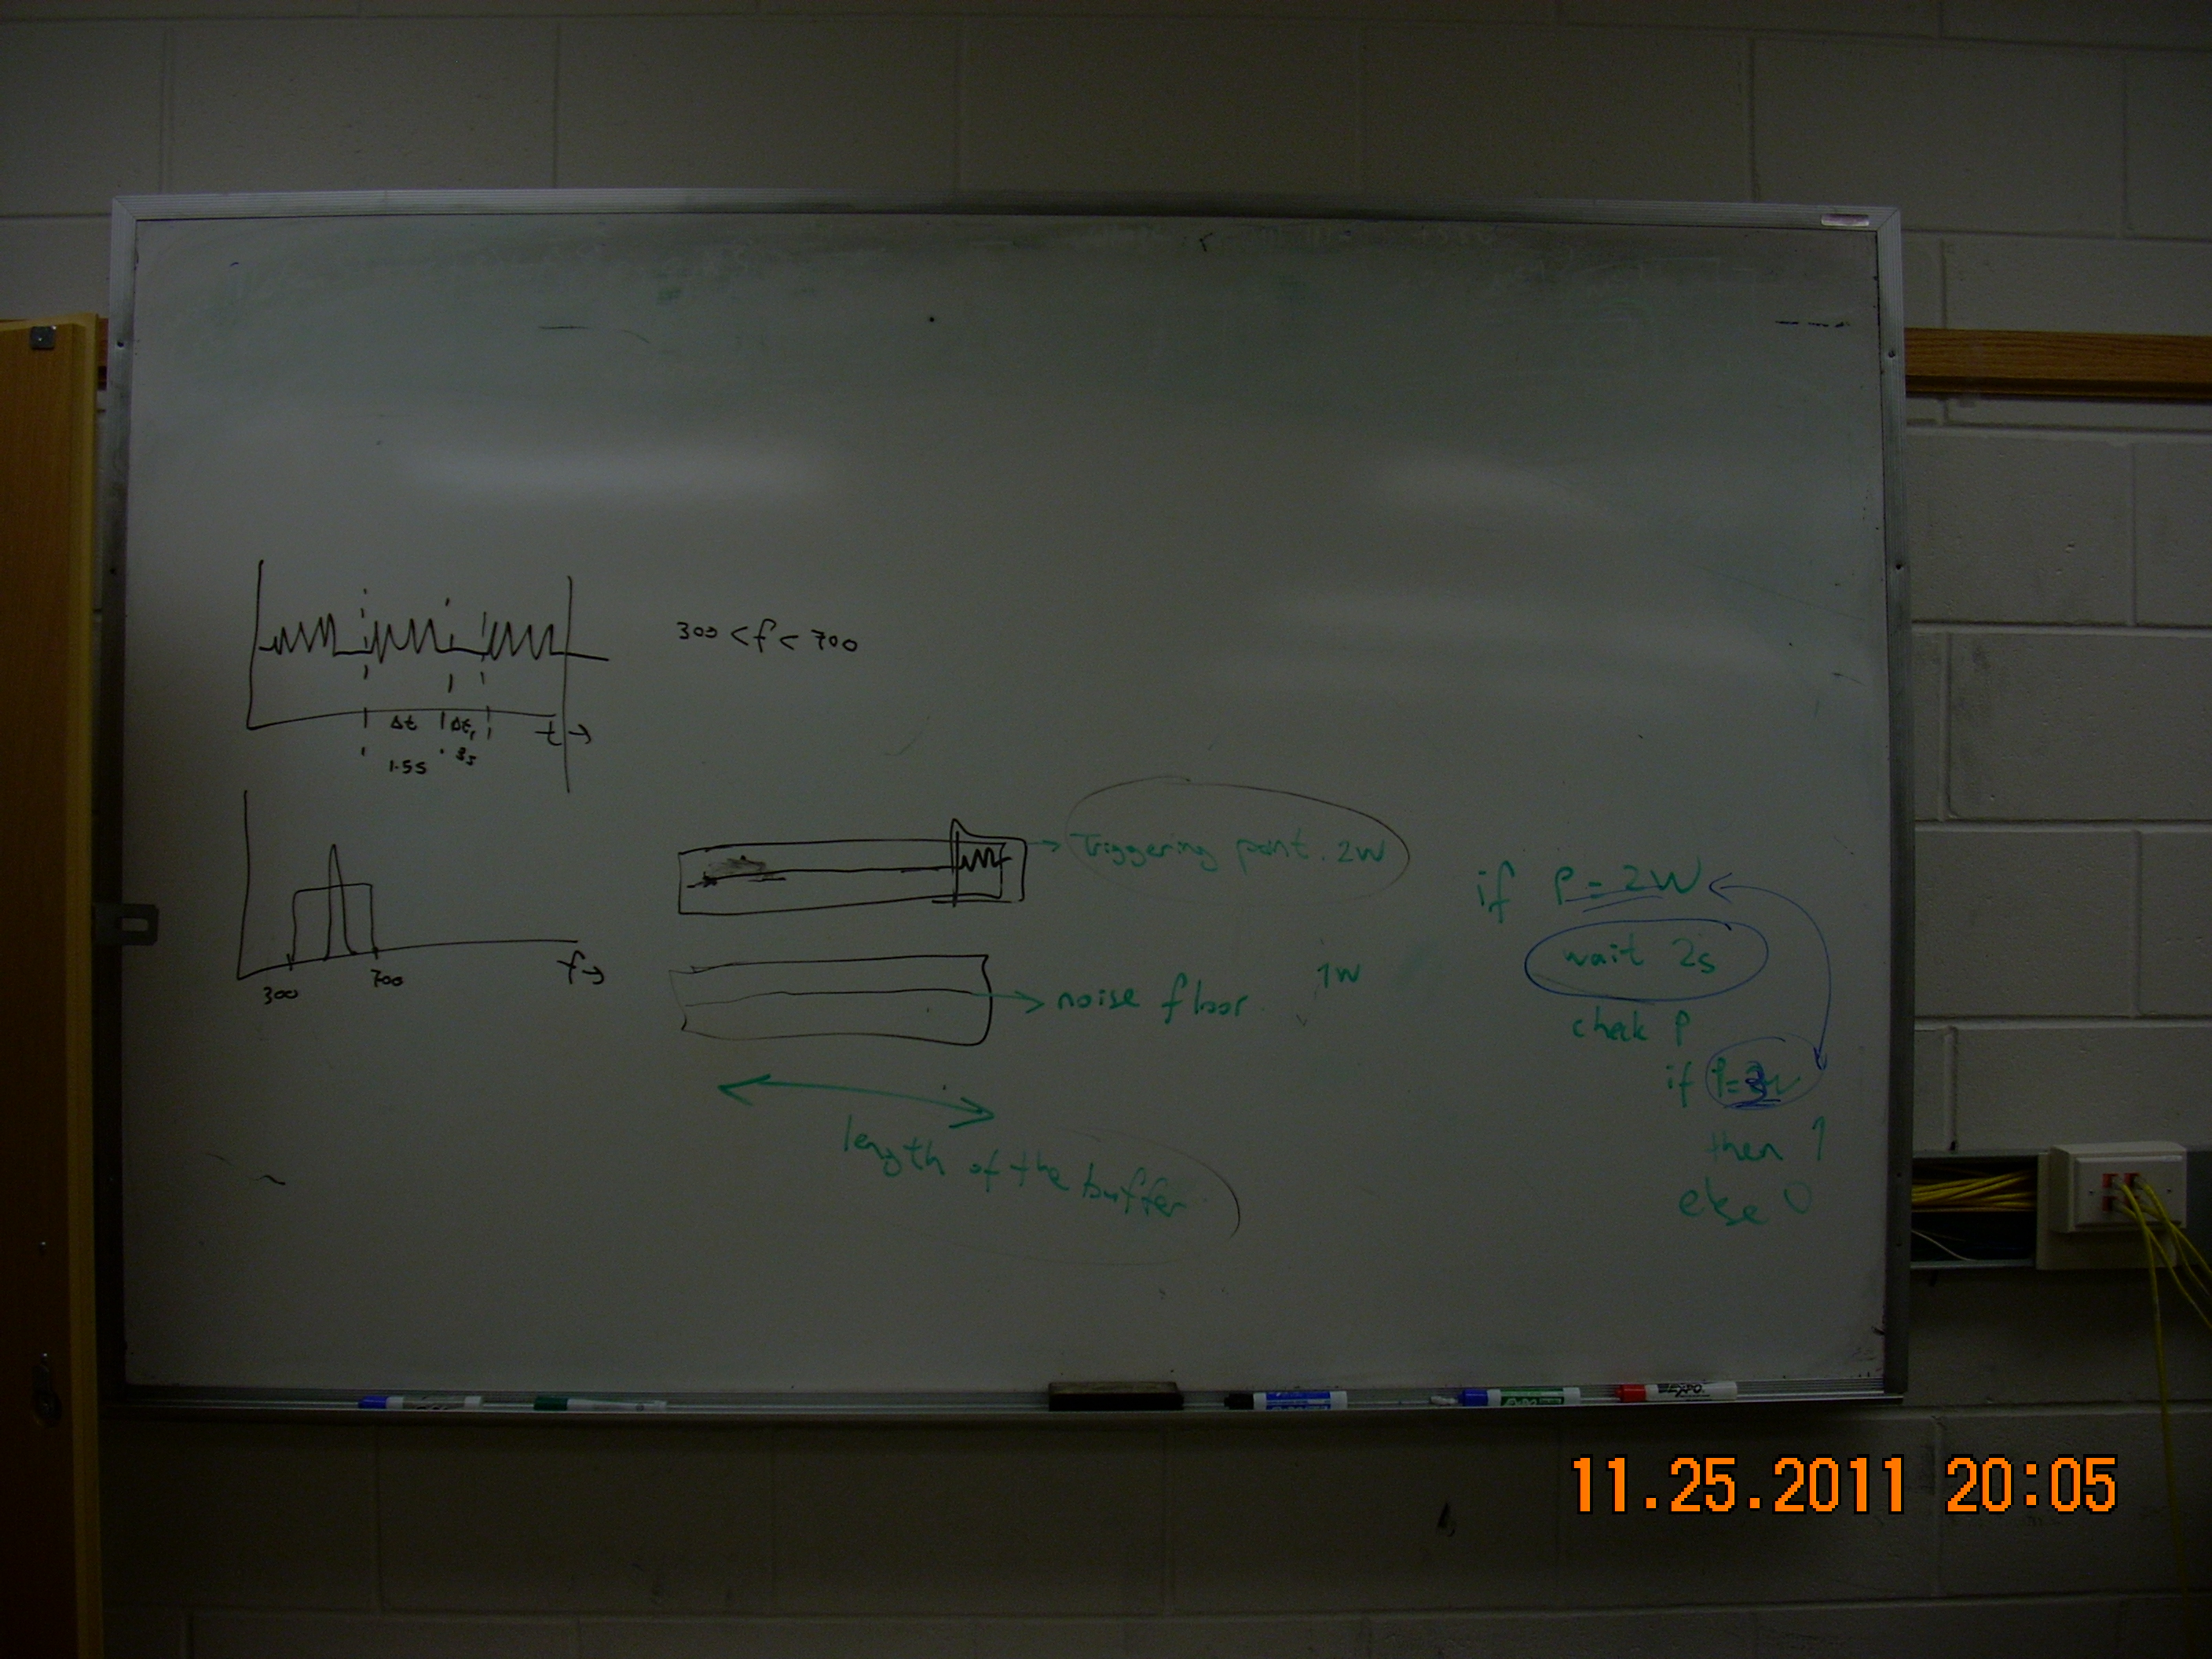 300 < f < 700
Δt Δt₁ t →
1.5s
300 700 f →
Triggering pont. 2W
noise floor. 1W
length of the buffer
if P = 2W
wait 2s
check P
if P=3W
then 1
else 0
EXPO
11.25.2011 20:05